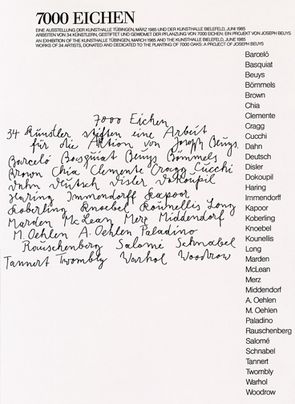 7000 EICHEN
EINE AUSSTELLUNG DER KUNSTHALLE TÜBINGEN, MÄRZ 1985 UND DER KUNSTHALLE BIELEFELD, JUNI 1985
ARBEITEN VON 34 KÜNSTLERN, GESTIFTET UND GEWIDMET DER PFLANZUNG VON 7000 EICHEN. EIN PROJEKT VON JOSEPH BEUYS
AN EXHIBITION OF THE KUNSTHALLE TÜBINGEN, MARCH 1985 AND THE KUNSTHALLE BIELEFELD, JUNE 1985
WORKS OF 34 ARTISTS, DONATED AND DEDICATED TO THE PLANTING OF 7000 OAKS: A PROJECT OF JOSEPH BEUYS
7000 Eichen
34 Künstler stiften eine Arbeit
für die Aktion von Joseph Beuys
Barceló Basquiat Beuys Bömmels
Brown Chia Clemente Cragg Cucchi
Dahn Deutsch Disler Dokoupil
Haring Immendorff Kapoor
Koberling Knoebel Kounellis Long
Marden McLean Merz Middendorf
M. Oehlen A. Oehlen Paladino
Rauschenberg Salomé Schnabel
Tannert Twombly Warhol Woodrow
Barceló
Basquiat
Beuys
Bömmels
Brown
Chia
Clemente
Cragg
Cucchi
Dahn
Deutsch
Disler
Dokoupil
Haring
Immendorff
Kapoor
Koberling
Knoebel
Kounellis
Long
Marden
McLean
Merz
Middendorf
A. Oehlen
M. Oehlen
Paladino
Rauschenberg
Salomé
Schnabel
Tannert
Twombly
Warhol
Woodrow